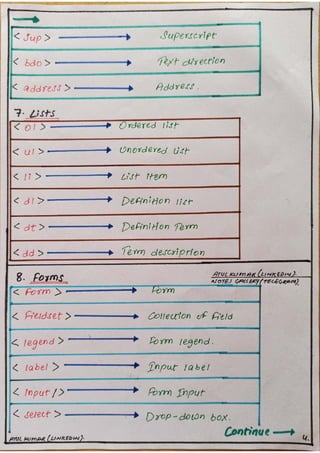 < Sup > → Superscript
< bdo > → Text direction
< address > → Address.
7. Lists
< ol > → Ordered list
< ul > → Unordered list
< li > → List Item
< dl > → Definition list
< dt > → Definition Term
< dd > → Term description
ATUL KUMAR (LINKEDIN).
NOTES GALLERY (TELEGRAM)
8. Forms
< form > → Form
< Fieldset > → Collection of Field
< legend > → Form legend.
< label > → Input label
< Input /> → Form Input
< Select > → Drop-down box.
Continue →
ATUL KUMAR (LINKEDIN).
4.